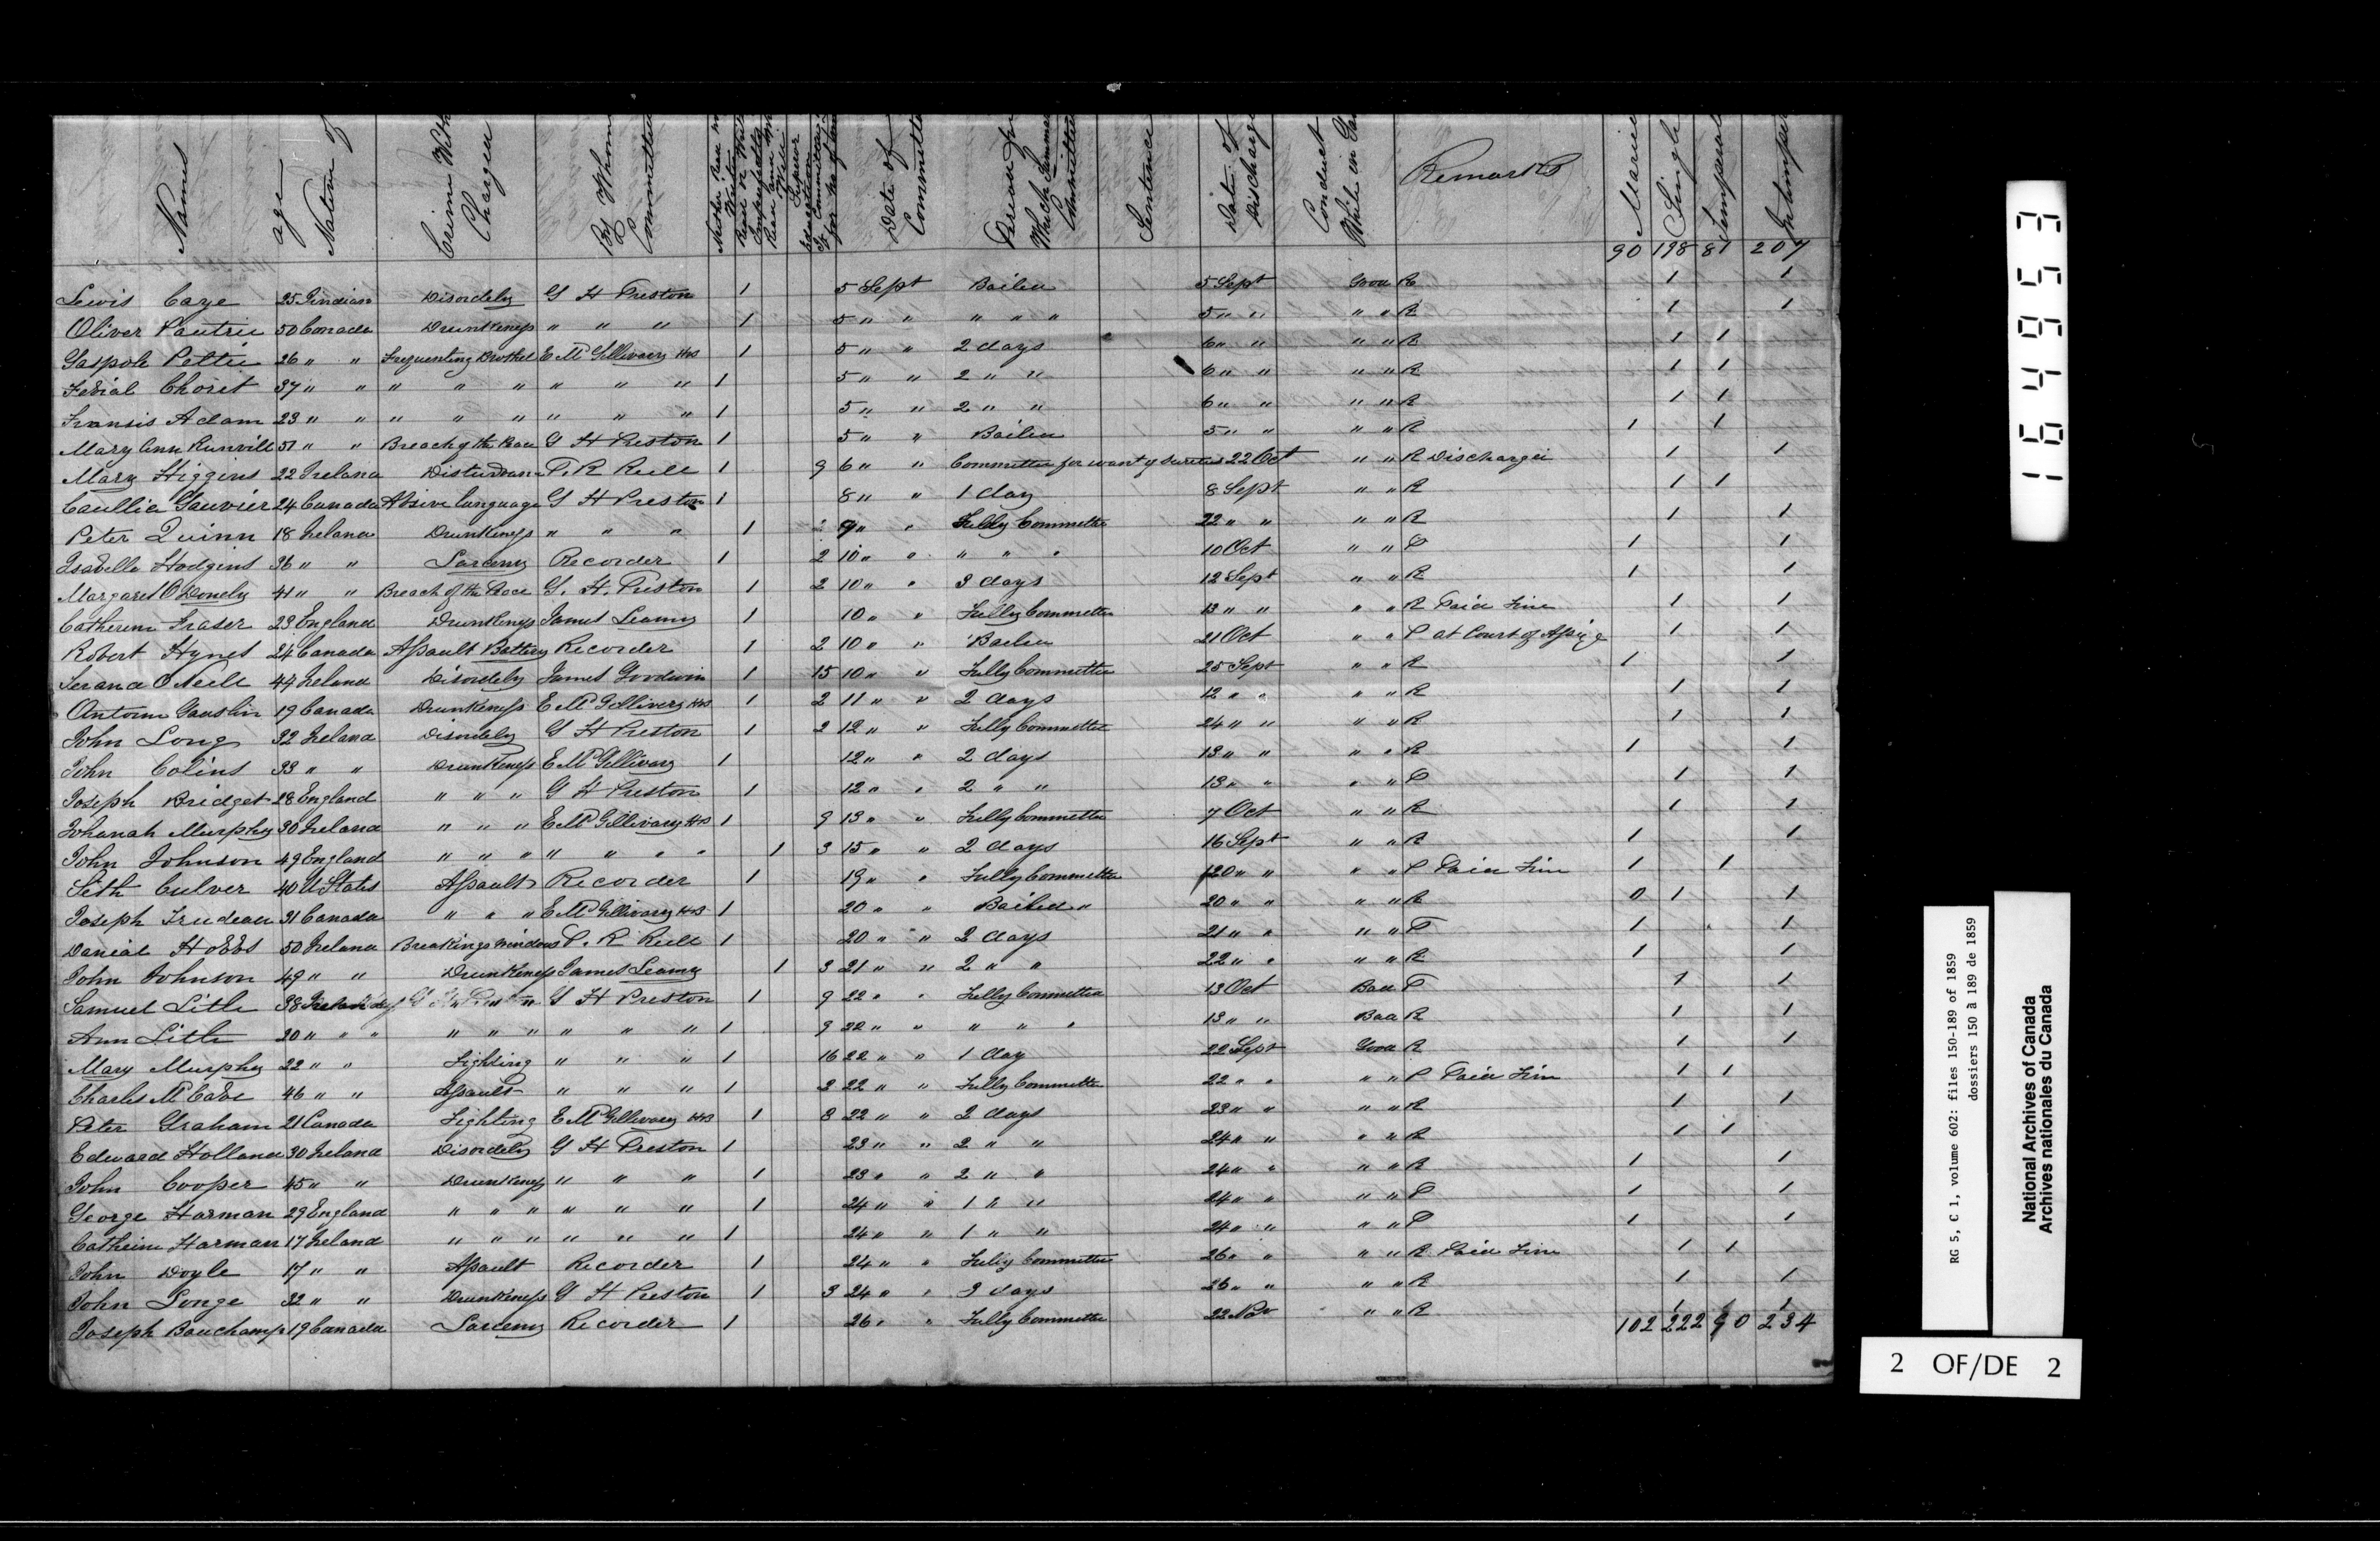 Names age Nativ of Crime With Charged By Whom Committed Neither Read nor Write Read or Write Imperfectly Read and Write Well Superior Education Date of Committal Period for Which Committed Sentence Date of Discharge Conduct While in Gaol Remarks Married Single Temperate Intemperate
90 198 81 207
Lewis Caze 25 Indian Disordely G H Preston 1 5 Sept Bailed 5 Sept Good R 1 1
Oliver Pautrie 50 Canada Drunkeness " " " 1 5 " " " " " 5 " " " " R 1 1
Gaspole Pettie 26 " " Frequenting Brothel E McGillivary HS 1 5 " " 2 days 6 " " " " R 1 1
Fedial Choret 37 " " " " " " " " 1 5 " " 2 " " 6 " " " " R 1 1
Fransis Adam 23 " " " " " " " " 1 5 " " 2 " " 6 " " " " R 1 1
Mary Ann Runvill 51 " " Breach of the Peace G H Preston 1 5 " " Bailed 5 " " " " R 1 1
Mary Higgins 22 Ireland Disturbance P. R Rielle 1 9 6 " " Committed for want of sureties 22 Oct " " R Discharged 1 1
Caullia Gauvier 24 Canada Absive language G H Preston 1 8 " " 1 day 8 Sept " " R 1 1
Peter Quinn 18 Ireland Drunkeness " " " 1 2 9 " " Fully Committed 22 " " " " R 1 1
Isabella Hodgins 36 " " Larceny Recorder 1 2 10 " " " " " 10 Oct " " P 1 1
Margaret O Donely 41 " " Breach of the Peace G. H. Preston 1 2 10 " " 3 days 12 Sept " " R 1 1
Catherine Fraser 23 England Drunkeness James Leamy 1 10 " " Fully Committed 13 " " " " R Paid Fine 1 1
Robert Hynes 24 Canada Assault Battery Recorder 1 2 10 " " Bailed 21 Oct " " P at Court of Assize 1 1
Terance O Neill 44 Ireland Disordely James Goodwin 1 15 10 " " Fully Committed 25 Sept " " R 1 1
Antoine Gauslin 19 Canada Drunkeness E McGillivery HS 1 2 11 " " 2 days 12 " " " " R 1 1
John Long 32 Ireland Disordely G H Preston 1 2 12 " " Fully Committed 24 " " " " R 1 1
John Colins 33 " " Drunkeness E McGillivary 1 12 " " 2 days 13 " " " " R 1 1
Joseph Bridget 28 England " " " G H Preston 1 12 " " 2 " " 13 " " " " P 1 1
Johanah Murphy 30 Ireland " " " E McGillivary HS 1 9 13 " " Fully Committed 7 Oct " " R 1 1
John Johnson 49 England " " " " " " " 1 3 15 " " 2 days 16 Sept " " R 1 1
Seth Culver 40 U States Assault Recorder 1 19 " " Fully Committed 20 " " " " P Paid Fine 1 1
Joseph Trudeau 31 Canada " " " E McGillivary HS 1 20 " " Bailed " 20 " " " " R 0 1 1
Danial Hobbs 50 Ireland Breakings windows P. R Rielle 1 20 " " 2 days 21 " " " " P 1 1
John Johnson 49 " " Drunkeness James Leamy 1 3 21 " " 2 " " 22 " " " " R 1 1
Samuel Litle 38 Ireland G H Preston 1 9 22 " " Fully Committed 13 Oct Bad P 1 1
Ann Litle 20 " " " " " " " " " 1 9 22 " " " " " 13 " " Bad R 1 1
Mary Murphy 22 " " Fighting " " " 1 16 22 " " 1 day 22 Sept Good R 1 1
Charles McCabe 46 " " Assault " " " 1 2 22 " " Fully Committed 22 " " " " P Paid Fine 1 1
Peter Graham 21 Canada Fighting E McGillivary HS 1 8 22 " " 2 days 23 " " " " R 1 1
Edward Holland 30 Ireland Disordely G H Preston 1 23 " " 2 " " 24 " " " " R 1 1
John Cooper 45 " " Drunkeness " " " 1 23 " " 2 " " 24 " " " " R 1 1
George Harman 29 England " " " " " " 1 24 " " 1 " " 24 " " " " P 1 1
Catheine Harman 17 Ireland " " " " " " 1 24 " " 1 " " 24 " " " " P 1 1
John Doyle 17 " " Assault Recorder 1 24 " " Fully Committed 26 " " " " R Paid Fine 1 1
John Longe 32 " " Drunkeness G H Preston 1 3 24 " " 3 days 26 " " " " R 1 1
Joseph Bauchamp 19 Canada Larceny Recorder 1 26 " " Fully Committed 22 Nov " " R 1 1 1
102 222 90 234
164953
RG 5, C 1, volume 602: files 150-189 of 1859
dossiers 150 à 189 de 1859
National Archives of Canada
Archives nationales du Canada
2 OF/DE 2